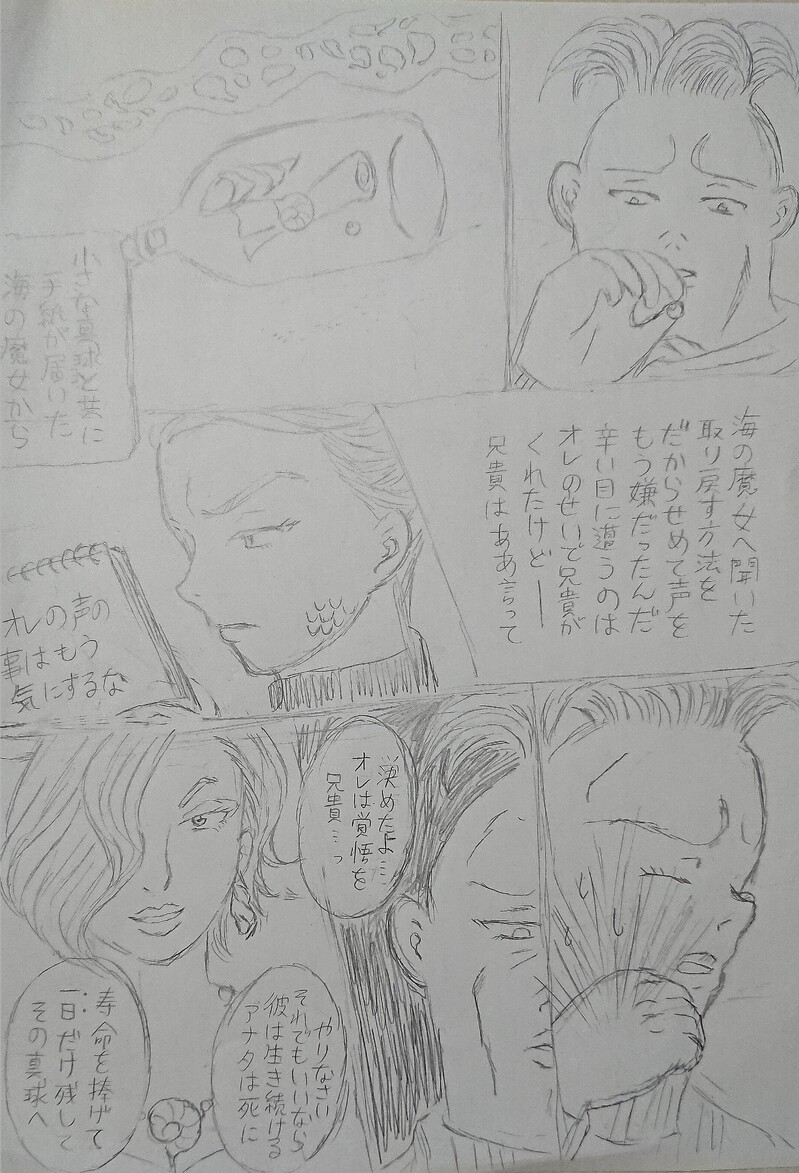 海の魔女から
手紙が届いた
小さな真球と共に
オレの声の
事はもう
気にするな
兄貴はああ言って
くれたけど──
オレのせいで兄貴が
辛い目に遭うのは
もう嫌だったんだ
だからせめて声を
取り戻す方法を
海の魔女へ聞いた
その真球へ
一日だけ残して
寿命を捧げて
アナタは死に
彼は生き続ける
それでもいいなら
やりなさい
兄貴…っ
オレは覚悟を
決めたよ…